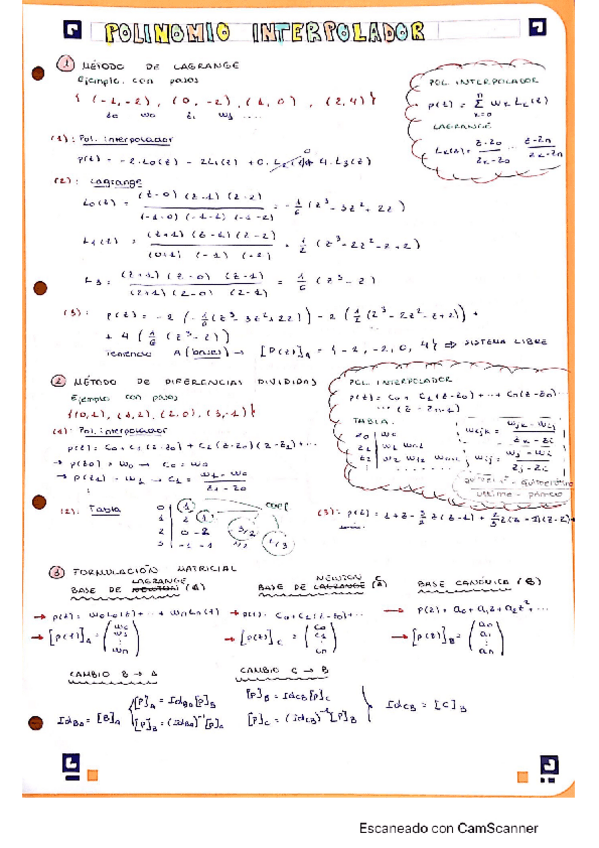 POLINOMIO INTERPOLADOR
① MÉTODO DE LAGRANGE
Ejemplo con pasos
{ (-1,-2) , (0,-2) , (1,0) , (2,4) }
z0 w0 z1 w1 ....
POL. INTERPOLADOR
p(z) = Σ wk Lk(z)
n
k=0
LAGRANGE
Lk(z) = z-z0 / zk-z0 ... z-zn / zk-zn
(1): Pol. interpolador
p(z) = -2·L0(z) - 2L1(z) + 0·L2(z) + 4·L3(z)
(2): Lagrange
L0(z) = (z-0)(z-1)(z-2) / (-1-0)(-1-1)(-1-2) = -1/6 (z³ - 3z² + 2z)
L1(z) = (z+1)(z-1)(z-2) / (0+1)(-1)(-2) = 1/2 (z³ - 2z² - z + 2)
L3 = (z+1)(z-0)(z-1) / (2+1)(2-0)(2-1) = 1/6 (z³ - z)
(3): p(z) = -2 (-1/6 (z³ - 3z² + 2z)) - 2 (1/2 (z³ - 2z² - z + 2)) +
+ 4 (1/6 (z³ - z))
Teniendo A (bases) → [P(z)]A = {-2, -2, 0, 4} ⇒ SISTEMA LIBRE
② MÉTODO DE DIFERENCIAS DIVIDIDAS
Ejemplo con pasos
{(0,1), (1,2), (2,0), (3,-1)}
POL INTERPOLADOR
p(z) = C0 + C1(z-z0) + ... + Cn(z-z0)...
... (z-zn-1)
TABLA:
z0 w0
z1 w1 w01
z2 w2 w12 w012
wijk = wjk - wij / zk - zi
wij = wj - wi / zj - zi
último - primero
(1): Pol. interpolador
p(z) = C0 + C1(z-z0) + C2(z-z0)(z-z1) + ...
→ p(z0) = w0 → C0 = w0
→ p(z1) = w1 → C1 = w1 - w0 / z1 - z0
(2): Tabla
0 1
1 2 1
2 0 -2 -3/2
3 -1 -1 1/2 2/3
coef
(3): p(z) = 1 + z - 3/2 z(z-1) + 2/3 z(z-1)(z-2)
③ FORMULACIÓN MATRICIAL
LAGRANGE
BASE DE NEWTON (A)
NEWTON C
BASE DE LAGRANGE (A)
BASE CANÓNICA (B)
→ p(z) = w0L0(z) + ... + wnLn(z)
→ p(z) = C0 + C1(z-z0) + ...
→ p(z) = a0 + a1z + a2z² + ...
→ [p(z)]A = (w0 w1 : wn)
→ [p(z)]C = (C0 C1 : Cn)
→ [p(z)]B = (a0 a1 : an)
CAMBIO B → A
CAMBIO C → B
IdBA = [B]A
[p]A = IdBA[p]B
[p]B = (IdBA)⁻¹[p]C
[p]B = IdCB[p]C
[p]C = (IdCB)⁻¹[p]B
IdCB = [C]B
Escaneado con CamScanner